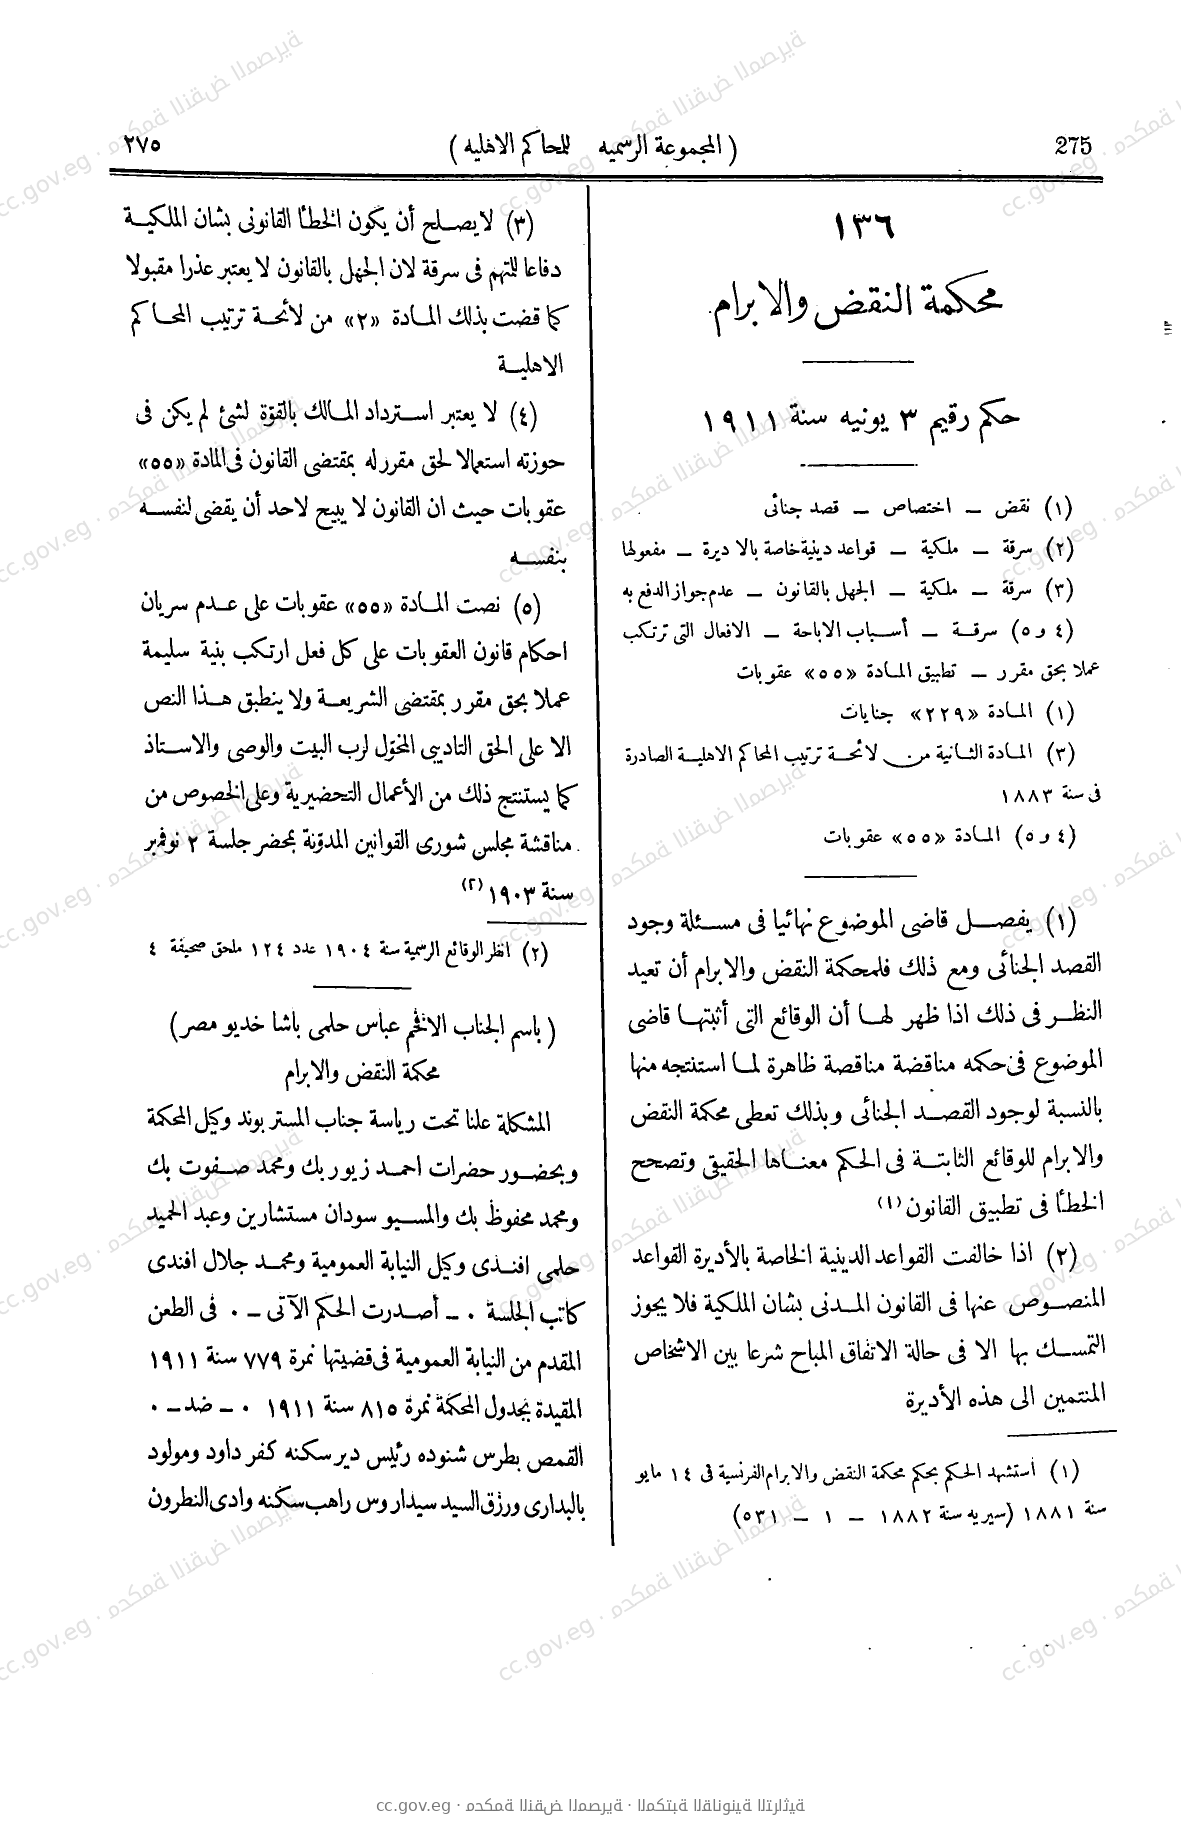 275
( المجموعة الرسميه للمحاكم الاهليه )
٢٧٥
١٣٦
محكمة النقض والابرام
حكم رقيم ٣ يونيه سنة ١٩١١
(١) نقض ــ اختصاص ــ قصد جنائى
(٢) سرقة ــ ملكية ــ قواعد دينية خاصة بالاديرة ــ مفعولها
(٣) سرقة ــ ملكية ــ الجهل بالقانون ــ عدم جواز الدفع به
(٤ و ٥) سرقة ــ أسباب الاباحة ــ الافعال التى ترتكب
عملا بحق مقرر ــ تطبيق المادة «٥٥» عقوبات
(١) المادة «٢٢٩» جنايات
(٣) المادة الثانية من لائحة ترتيب المحاكم الاهلية الصادرة
فى سنة ١٨٨٣
(٤ و ٥) المادة «٥٥» عقوبات
(١) يفصل قاضى الموضوع نهائيا فى مسئلة وجود
القصد الجنائى ومع ذلك فلمحكمة النقض والابرام أن تعيد
النظر فى ذلك اذا ظهر لها أن الوقائع التى أثبتها قاضى
الموضوع فى حكمه مناقضة مناقصة ظاهرة لما استنتجه منها
بالنسبة لوجود القصد الجنائى وبذلك تعطى محكمة النقض
والابرام للوقائع الثابتة فى الحكم معناها الحقيقى وتصحح
الخطأ فى تطبيق القانون (١)
(٢) اذا خالفت القواعد الدينية الخاصة بالأديرة القواعد
المنصوص عنها فى القانون المدنى بشان الملكية فلا يجوز
التمسك بها الا فى حالة الاتفاق المباح شرعا بين الاشخاص
المنتمين الى هذه الأديرة
(١) استشهد الحكم بحكم محكمة النقض والابرام الفرنسية فى ١٤ مايو
سنة ١٨٨١ (سيريه سنة ١٨٨٢ ــ ١ ــ ٥٣١)
(٣) لا يصلح أن يكون الخطأ القانونى بشان الملكية
دفاعا للمتهم فى سرقة لان الجهل بالقانون لا يعتبر عذرا مقبولا
كما قضت بذلك المادة «٢» من لائحة ترتيب المحاكم
الاهلية
(٤) لا يعتبر استرداد المالك بالقوة لشئ لم يكن فى
حوزته استعمالا لحق مقرر له بمقتضى القانون فى المادة «٥٥»
عقوبات حيث ان القانون لا يبيح لاحد أن يقضى لنفسه
بنفسه
(٥) نصت المادة «٥٥» عقوبات على عدم سريان
احكام قانون العقوبات على كل فعل ارتكب بنية سليمة
عملا بحق مقرر بمقتضى الشريعة ولا ينطبق هذا النص
الا على الحق التاديبى المخول لرب البيت والوصى والاستاذ
كما يستنتج ذلك من الأعمال التحضيرية وعلى الخصوص من
مناقشة مجلس شورى القوانين المدونة بمحضر جلسة ٢ نوفمبر
سنة ١٩٠٣ (٢)
(٢) انظر الوقائع الرسمية سنة ١٩٠٤ عدد ١٢٤ ملحق صحيفة ٤
( باسم الجناب الافخم عباس حلمى باشا خديو مصر)
محكمة النقض والابرام
المشكلة علنا تحت رياسة جناب المستر بوند وكيل المحكمة
وبحضور حضرات احمد زيور بك ومحمد صفوت بك
ومحمد محفوظ بك والمسيو سودان مستشارين وعبد الحميد
حلمى افندى وكيل النيابة العمومية ومحمد جلال افندى
كاتب الجلسة ٠ ــ أصدرت الحكم الآتى ــ ٠ فى الطعن
المقدم من النيابة العمومية فى قضيتها نمرة ٧٧٩ سنة ١٩١١
المقيدة بجدول المحكمة نمرة ٨١٥ سنة ١٩١١ ٠ ــ ضد ــ ٠
القمص بطرس شنوده رئيس دير سكنه كفر داود ومولود
بالبدارى ورزق السيد سيداروس راهب سكنه وادى النطرون
cc.gov.eg · محكمة النقض المصرية · المكتبة القانونية التراثية